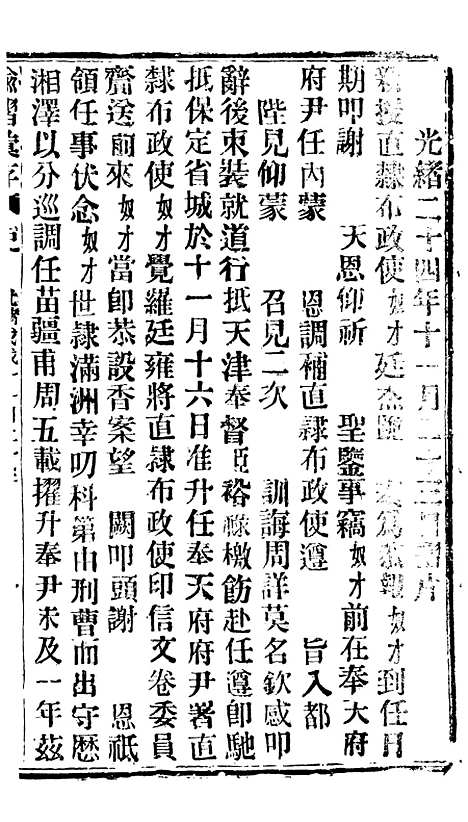 光緒二十四年十一月二十三日
新授直隸布政使奴才廷杰跪 奏爲恭報奴才到任日
期叩謝 天恩仰祈 聖鑒事竊奴才前在奉天府
府尹任內蒙 恩調補直隸布政使遵 旨入都
陛見仰蒙 召見二次 訓誨周詳莫名欽感叩
辭後束裝就道行抵天津奉督臣裕祿檄飭赴任遵卽馳
抵保定省城於十一月十六日准升任奉天府府尹署直
隸布政使奴才覺羅廷雍將直隸布政使印信文卷委員
齎送前來奴才當卽恭設香案望 闕叩頭謝 恩祇
領任事伏念奴才世隸滿洲幸叨科第由刑曹而出守歷
湘澤以分巡調任苗疆甫周五載擢升奉尹未及一年茲
諭摺彙存